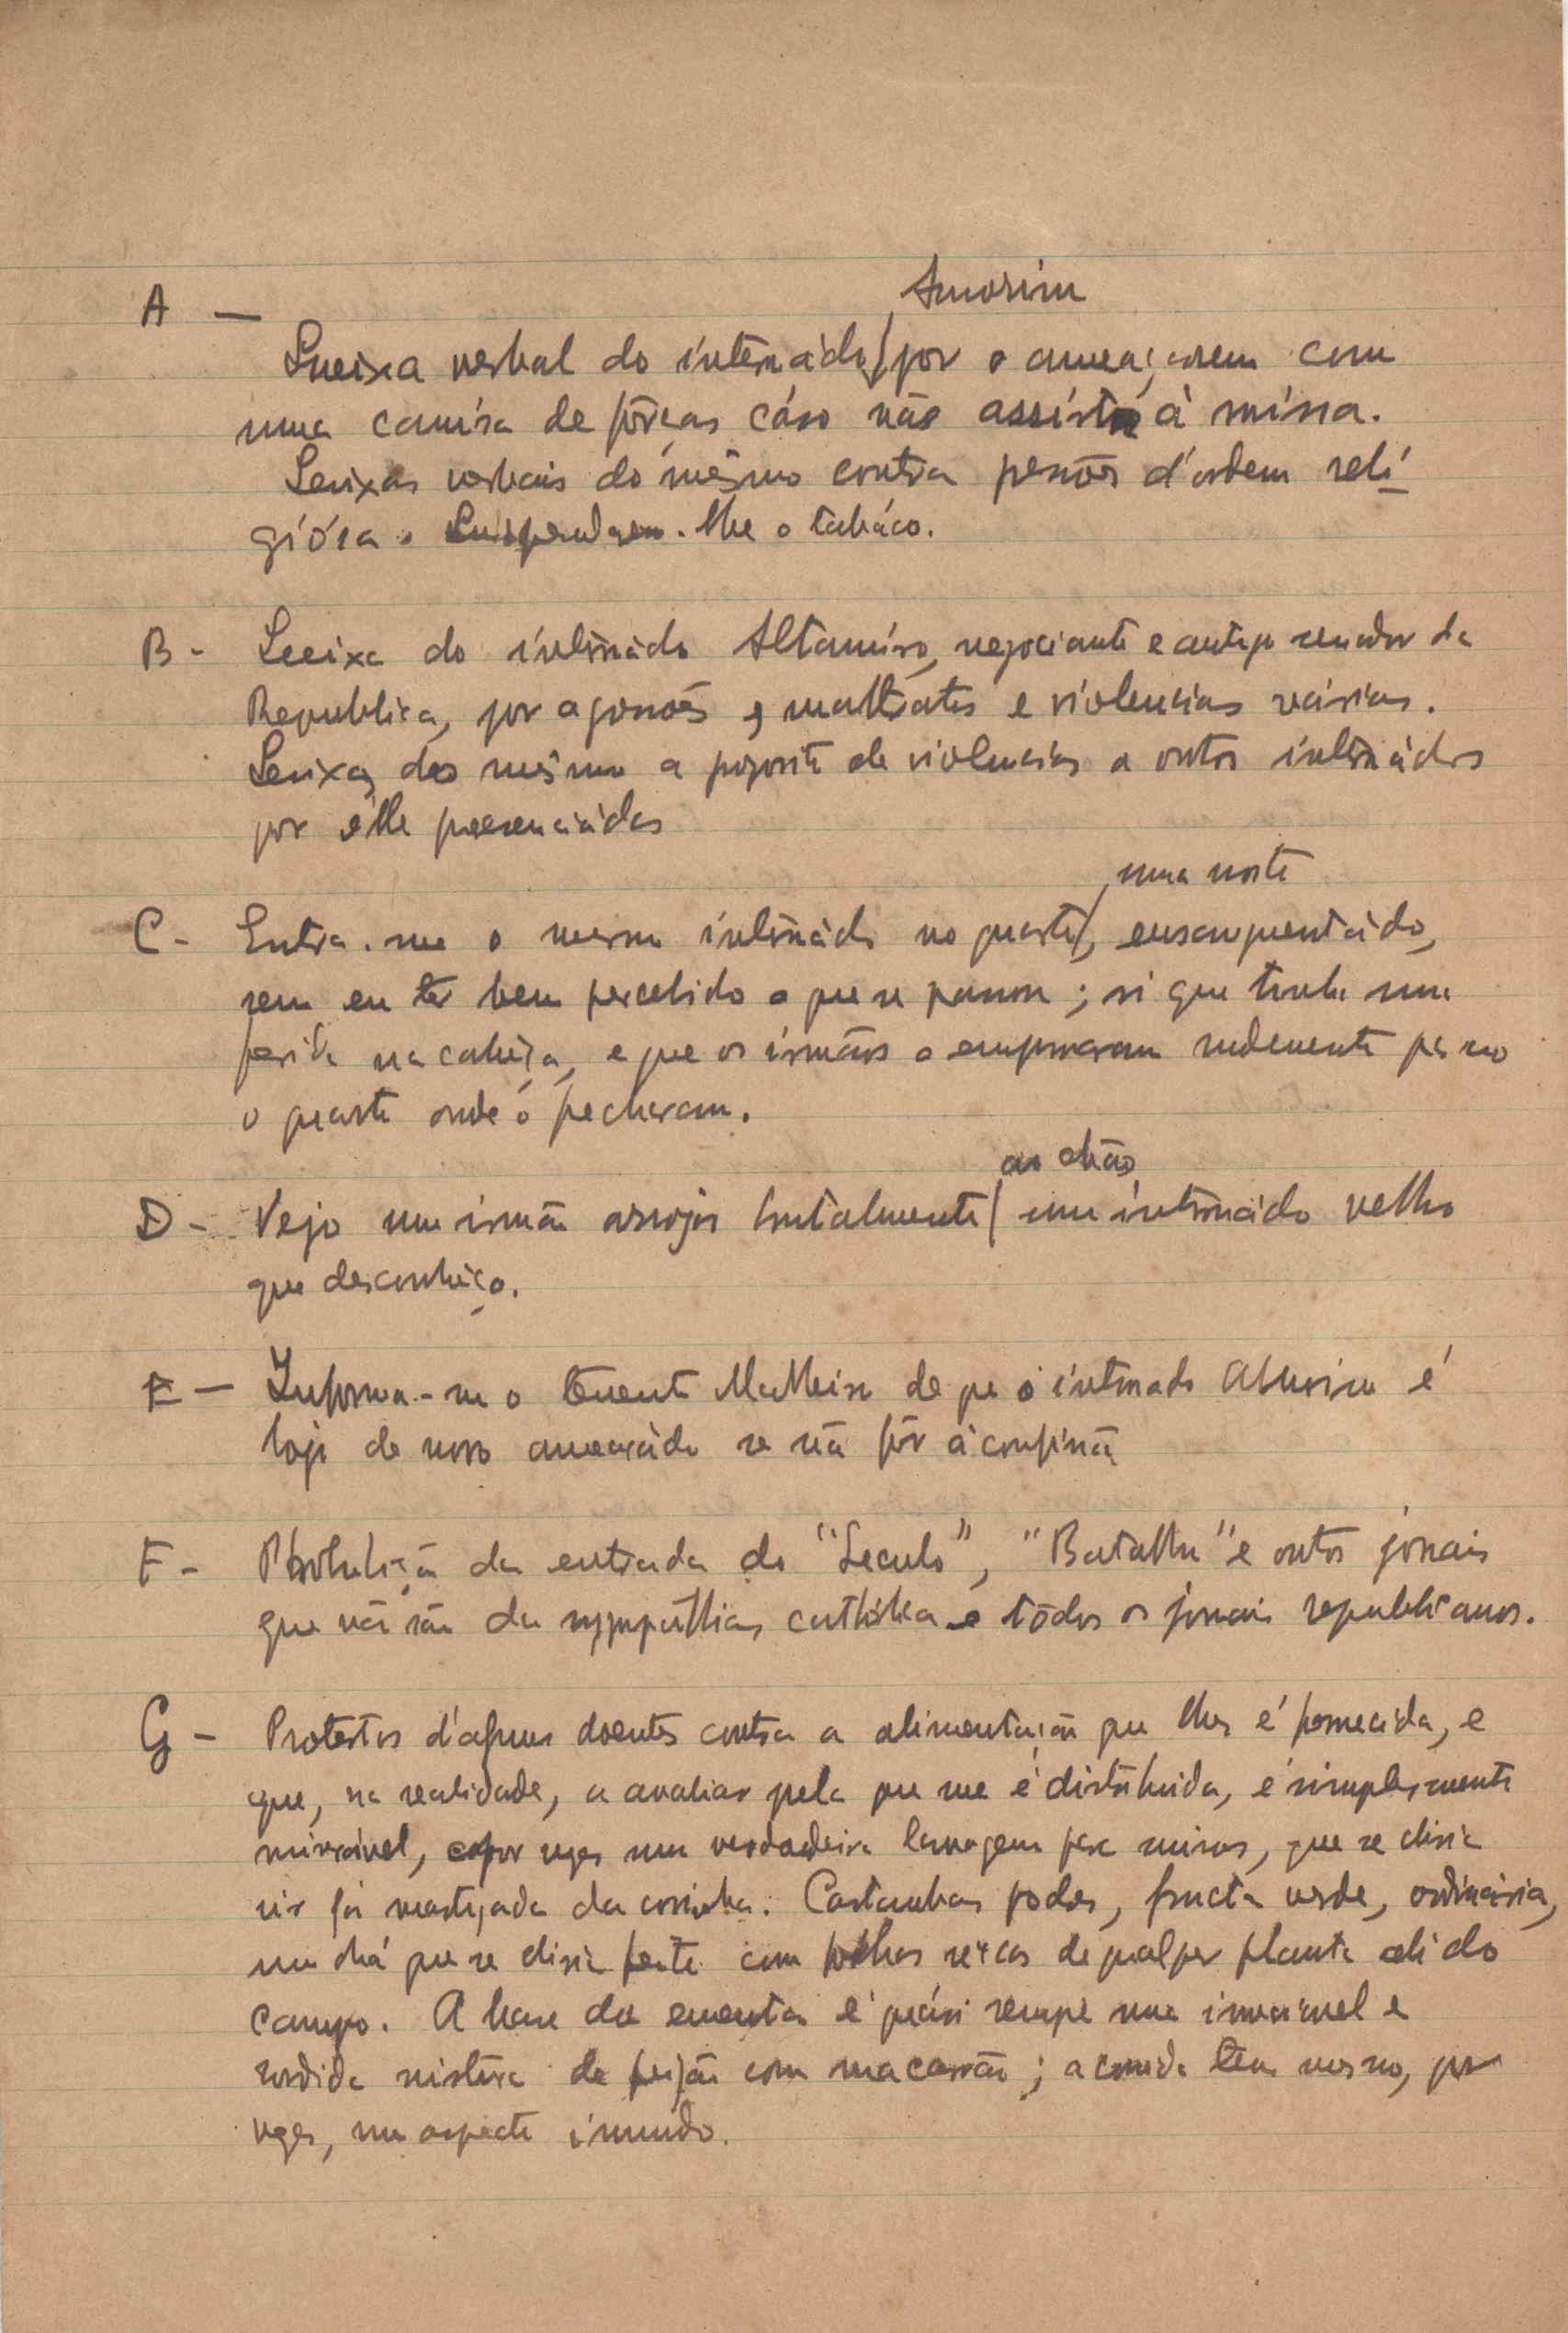 Amorim
A —
Queixa verbal do internádo / por o ameaçarem com
uma camisa de fôrças cáso não assista à missa.
Queixas verbais do mêsmo contra pressões d'ordem reli-
gióza. Suspendem-lhe o tabáco.
B - Queixa do internádo Altamiro, negociante e antigo senador da
Republica, por agressões, maltratos e violencias várias.
Queixas do mêsmo a proposito de violencias a outros internádos
por êlle presenciádas
uma noite
C - Entra-me o mesmo internádo no quarto /, ensanguentádo,
sem eu ter bem percebido o que se passou; vi que tinha uma
ferida na cabêça, e que os irmãos o empurraram rudemente para
o quarto onde o fecharam.
ao chão
D - Vejo um irmão arrojar brutalmente / um internádo velho
que desconhêço.
E — Informa-me o tenente Malheiro de que o internado Amorim é
hoje de novo ameaçádo se não fôr à confissão
F - Prohibição da entrada do "Seculo", "Batalha" e outros jornais
que não são da sympathia cathólica e tôdos os jornais republicanos.
G - Protestos d'alguns doentes contra a alimentação que lhes é fornecida, e
que, na realidade, a avaliar pela que me é distribuida, é simplesmente
miserável, e por vezes uma verdadeira lavagem para suinos, que se diria
vir já mastigada da cosinha. Castanhas podres, fructa verde, ordinária,
um chá que se diria feito com folhas sêcas de qualquer planta ali do
campo. A base da ementa é quási sempre uma invariavel e
sordida mistura de feijão com macarrão; a comida tem mesmo, por
vezes, um aspecto imundo.